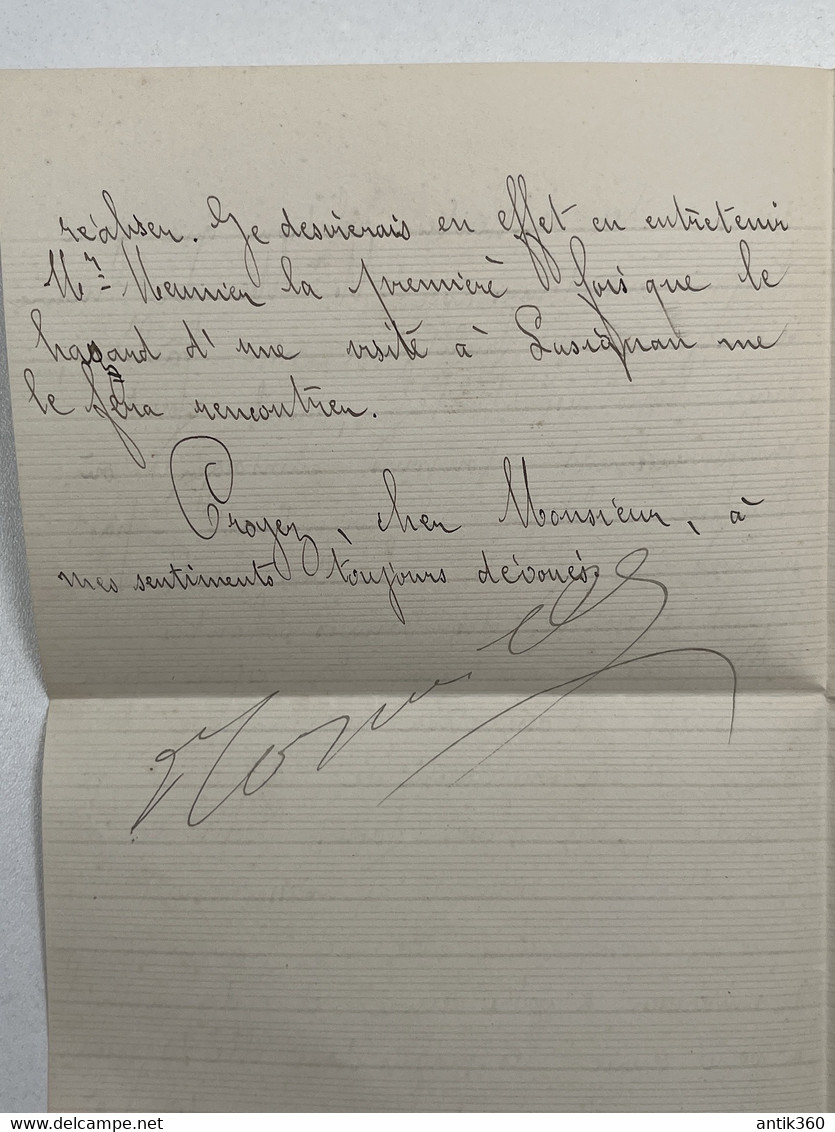 réaliser. Je desirerais en effet en entretenir
Mr Meunier la première fois que le
hasard d'une visite à Lusignan me
le fera rencontrer.
Croyez, cher Monsieur, à
mes sentiments toujours dévoués
delcampe.net
antik360